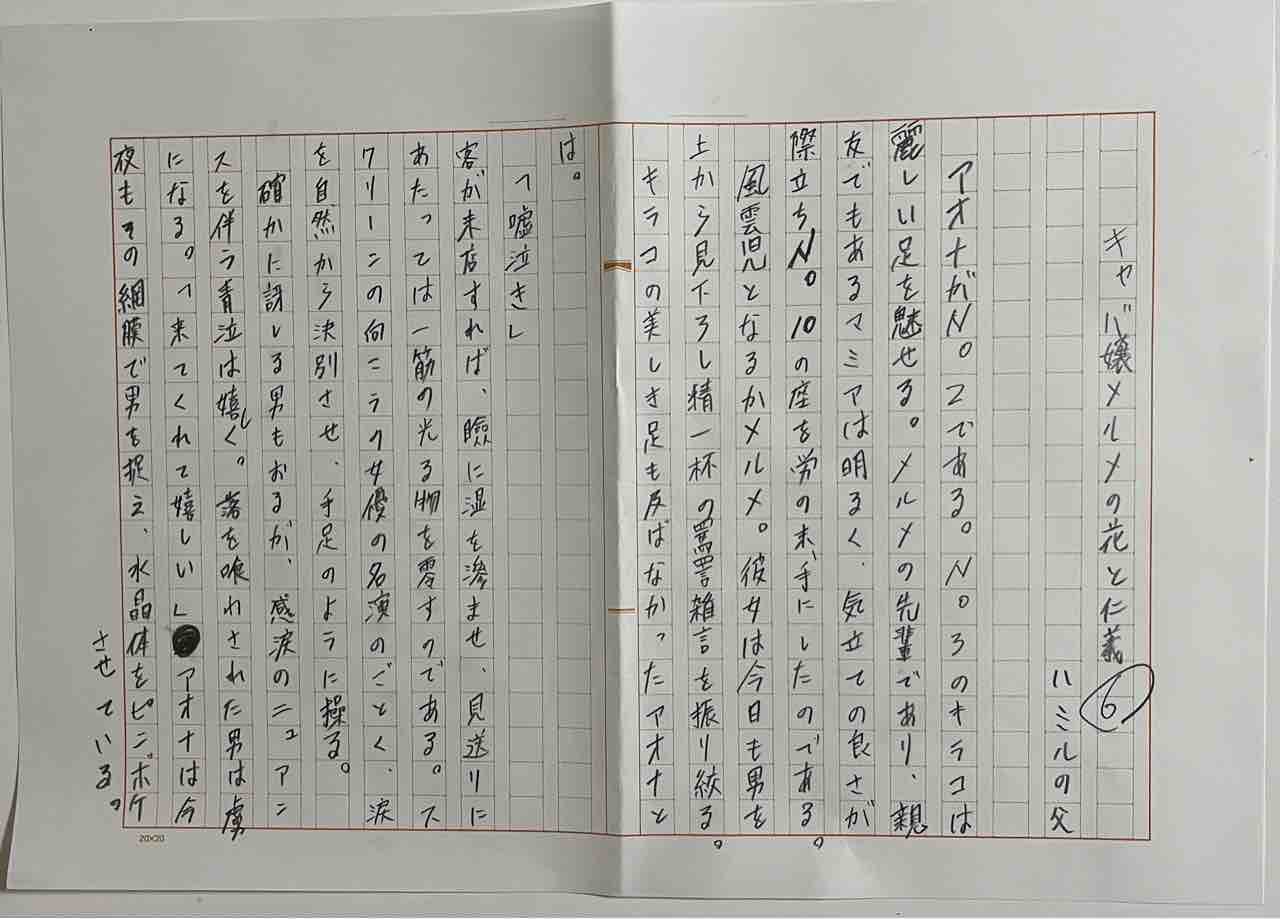 キャバ嬢メルメの花と仁義⑥
ハミルの父
アオナがN。2である。N。3のキラコは
麗しい足を魅せる。メルメの先輩であり、親
友でもあるマミアは明るく、気立ての良さが
際立ちN。10の座を労の末、手にしたのである。
風雲児となるかメルメ。彼女は今日も男を
上から見下ろし精一杯の罵詈雑言を振り絞る。
キラコの美しき足も及ばなかったアオナと
は。
「嘘泣き」
客が来店すれば、瞼に湿を滲ませ、見送りに
あたっては一筋の光る物を零すのである。ス
クリーンの向こうの女優の名演のごとく、涙
を自然から決別させ、手足のように操る。
確かに訝しる男もおるが、感涙のニュアン
スを伴う青泣は嬉しく。落を喰わされた男は虜
になる。「来てくれて嬉しい」アオナは今
夜もその網膜で男を捉え、水晶体をピンボケ
させている。
20×20